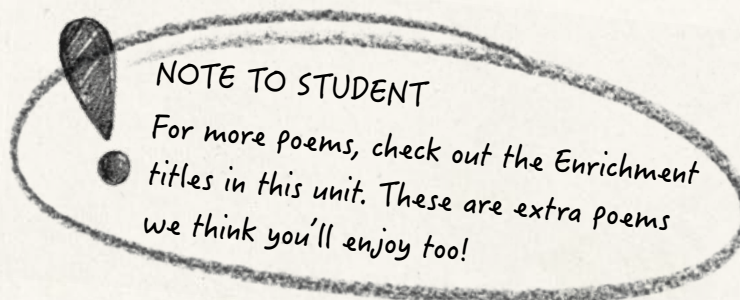 NOTE TO STUDENT
For more poems, check out the Enrichment
titles in this unit. These are extra poems
we think you'll enjoy too!